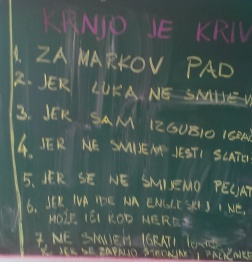 KRNJO JE KRIV
1. ZA MARKOV PAD
2. JER LUKA NE SMIJE
3. JER SAM IZGUBIO IGRA
4. JER NE SMIJEM JESTI SLATK
5. JER SE NE SMIJEMO PELJAT
6. JER IVA IDE NA ENGLESKI I NE
MOŽE IĆI KOD
7. NE SMIJEM IGRATI
JER SE ZAPALIO